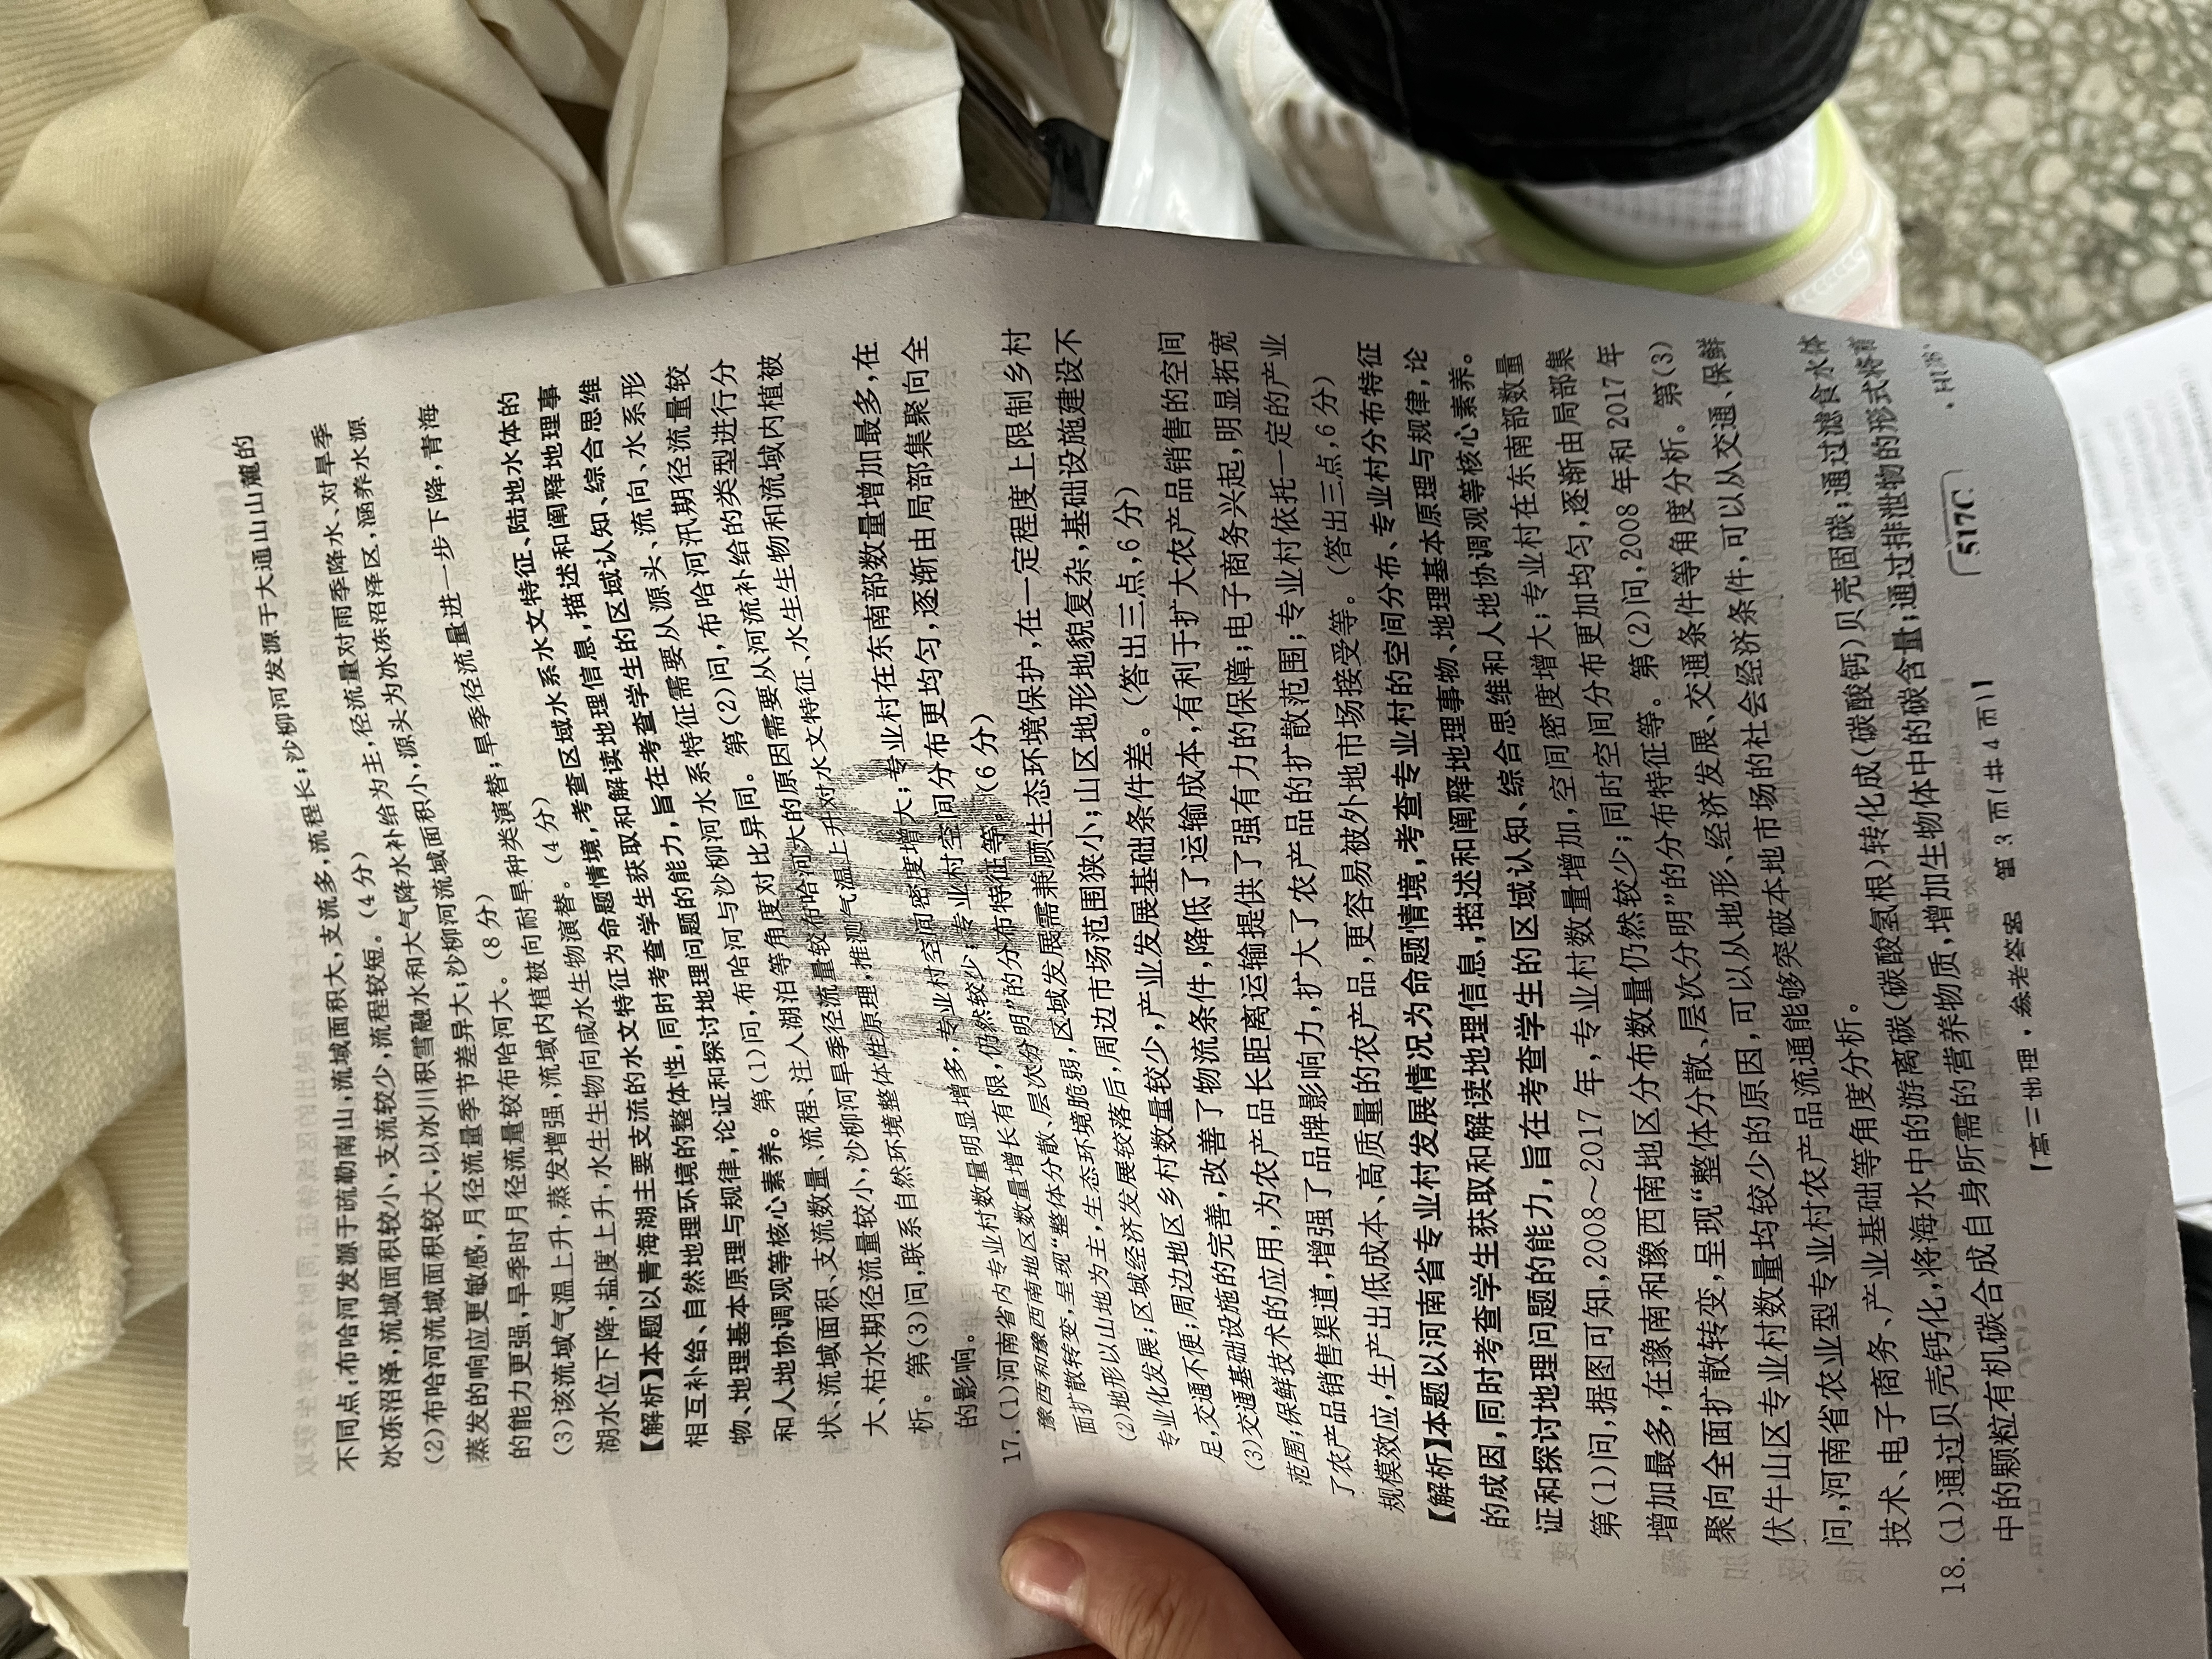 不同点:布哈河发源于疏勒南山,流域面积大,支流多,流程长;沙柳河发源于大通山山麓的
冰冻沼泽,流域面积较小,支流较少,流程较短。(4 分)
(2)布哈河流域面积较大,以冰川积雪融水和大气降水补给为主,径流量对雨季降水、对旱季
蒸发的响应更敏感,月径流量季节差异大;沙柳河流域面积小,源头为冰冻沼泽区,涵养水源
的能力更强,旱季时月径流量较布哈河大。(8 分)
(3)该流域气温上升,蒸发增强,流域内植被向耐旱种类演替;旱季径流量进一步下降,青海
湖水位下降,盐度上升,水生生物向咸水生物演替。(4 分)
【解析】本题以青海湖主要支流的水文特征为命题情境,考查区域水系水文特征、陆地水体的
相互补给、自然地理环境的整体性,同时考查学生获取和解读地理信息,描述和阐释地理事
物、地理基本原理与规律,论证和探讨地理问题的能力,旨在考查学生的区域认知、综合思维
和人地协调观等核心素养。第(1)问,布哈河与沙柳河水系特征需要从源头、流向、水系形
状、流域面积、支流数量、流程、注入湖泊等角度对比异同。第(2)问,布哈河汛期径流量较
大、枯水期径流量较小,沙柳河旱季径流量较布哈河大的原因需要从河流补给的类型进行分
析。第(3)问,联系自然环境整体性原理,推测气温上升对水文特征、水生生物和流域内植被
的影响。
17.(1)河南省内专业村数量明显增多,专业村空间密度增大;专业村在东南部数量增加最多,在
豫西和豫西南地区数量增长有限,仍然较少;专业村空间分布更均匀,逐渐由局部集聚向全
面扩散转变,呈现“整体分散、层次分明”的分布特征等。(6 分)
(2)地形以山地为主,生态环境脆弱,区域发展需兼顾生态环境保护,在一定程度上限制乡村
专业化发展;区域经济发展较落后,周边市场范围狭小;山区地形地貌复杂,基础设施建设不
足,交通不便;周边地区乡村数量较少,产业发展基础条件差。(答出三点,6 分)
(3)交通基础设施的完善,改善了物流条件,降低了运输成本,有利于扩大农产品销售的空间
范围;保鲜技术的应用,为农产品长距离运输提供了强有力的保障;电子商务兴起,明显拓宽
了农产品销售渠道,增强了品牌影响力,扩大了农产品的扩散范围;专业村依托一定的产业
规模效应,生产出低成本、高质量的农产品,更容易被外地市场接受等。(答出三点,6 分)
【解析】本题以河南省专业村发展情况为命题情境,考查专业村的空间分布、专业村分布特征
的成因,同时考查学生获取和解读地理信息,描述和阐释地理事物、地理基本原理与规律,论
证和探讨地理问题的能力,旨在考查学生的区域认知、综合思维和人地协调观等核心素养。
第(1)问,据图可知,2008～2017 年,专业村数量增加,空间密度增大;专业村在东南部数量
增加最多,在豫南和豫西南地区分布数量仍然较少;同时空间分布更加均匀,逐渐由局部集
聚向全面扩散转变,呈现“整体分散、层次分明”的分布特征等。第(2)问,2008 年和 2017 年
伏牛山区专业村数量均较少的原因,可以从地形、经济发展、交通条件等角度分析。第(3)
问,河南省农业型专业村农产品流通能够突破本地市场的社会经济条件,可以从交通、保鲜
技术、电子商务、产业基础等角度分析。
18.(1)通过贝壳钙化,将海水中的游离碳(碳酸氢根)转化成(碳酸钙)贝壳固碳;通过滤食水体
中的颗粒有机碳合成自身所需的营养物质,增加生物体中的碳含量;通过排泄物的形式将
【高三地理·参考答案 第 3 页(共 4 页)】
517C